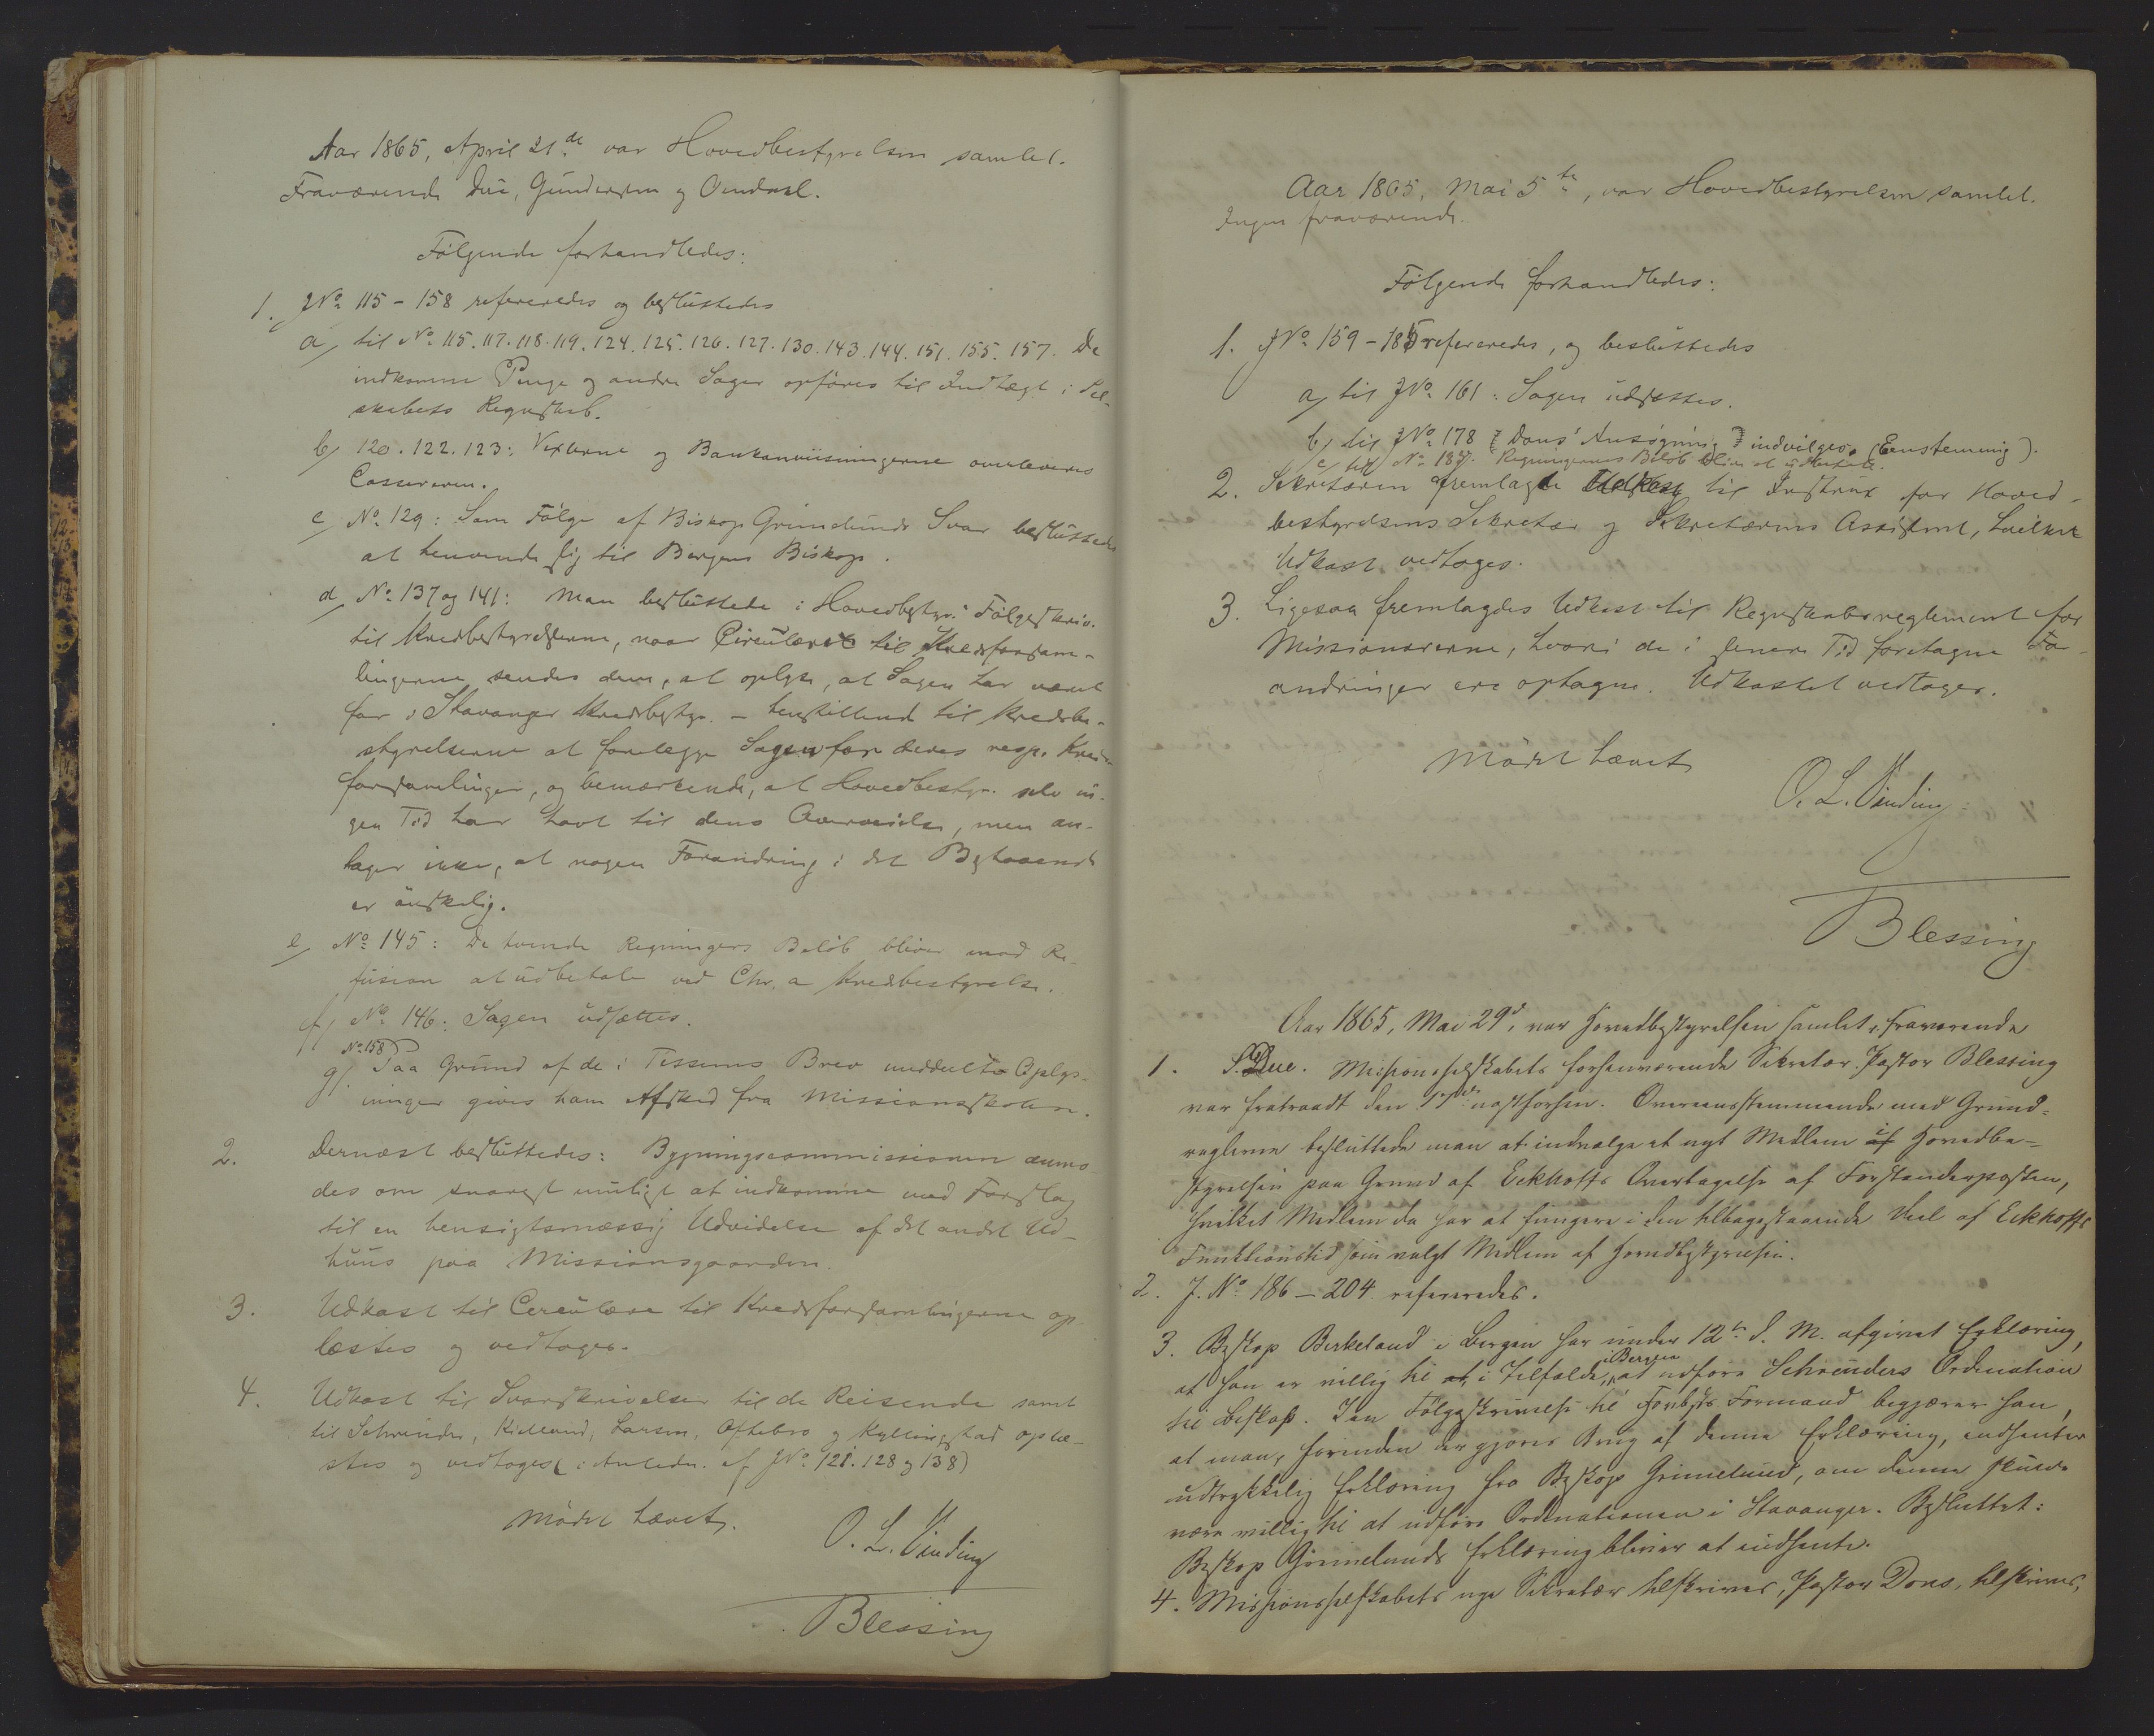 Aar 1865, April 21de var Hovedbestyrelsen samlet.
Fraværende Due, Gundersen og Omdal.
Følgende forhandledes:
1. JNo 115-158 refereredes og besluttedes
a, til No 115. 117. 118. 119. 124. 125. 126. 127. 130. 143. 144. 151. 155. 157. De
indkomne Penge og andre Sager opføres til Indtægt i Sel-
skabets Regnskab.
b, 120. 122. 123: Vexlerne og Bankanviisningerne overleveres
Cassereren.
c, No 129: Som Følge af Biskop Grimelunds Svar besluttedes
at henvende sig til Bergens Biskop.
d, No 137 og 141: Man besluttede i Hovedbstyr.s Følgeskriv.
til Kredsbestyrelserne, naar Circulæret til Kredsforsam-
lingerne sendes dem, at oplyse, at Sagen har været
for i Stavanger Kredsbstyr. - henstillende til Kredsbe-
styrelserne at forelegge Sagen for deres resp. Kreds-
forsamlinger, og bemærkende, at Hovedbestyr. selv in-
gen Tid har havt til dens Overveielse, men an-
tager ikke, at nogen Forandring i det Bestaaende
er ønskelig.
e, No 145: De tvende Regningers Beløb bliver mod Re-
fusion at udbetale ved Chr.a Kredsbestyrelse.
f, No 146: Sagen udsættes.
No 158
g, Paa Grund af de i Tessems Brev meddeelte Oplys-
ninger gives ham Afsked fra Missionsskolen.
2. Dernæst besluttedes: Bygningscommissionen anmo-
des om snarest muligt at indkomme med Forslag
til en hensigtsmæssig Udvidelse af det andet Ud-
huus paa Missionsgaarden.
3. Udkast til Cerculære til Kredsforsamlingerne op-
læstes og vedtoges.
4. Udkast til Svarskrivelser til de Reisende samt
til Schreuder, Kielland, Larsen, Oftebro og Kyllingstad oplæ-
stes og vedtoges (i Anledn. af JNo 121. 128 og 138)
Mødet hævet.
O. L. Vinding
Blessing
Aar 1865, Mai 5te, var Hovedbestyrelsen samlet.
Ingen fraværende.
Følgende forhandledes:
1. JNo 159-185 refereredes, og besluttedes
a, til JNo 161: Sagen udsættes.
b, til JNo 178 Dons' Ansøgning indvilges. (Eenstemmig).
c, til No 182. Regningernes Beløb bliver at udbetale.
2. Sekretæren fremlagde Udkast til Instrux for Hoved-
bestyrelsens Sekretær og Sekretærens Assistent, hvilket
Udkast vedtoges.
3. Ligesaa fremlagdes Udkast til Regnskabsreglement for
Missionærerne, hvori de i senere Tid foretagne Fo-
andringer ere optagne. Udkastet vedtoges.
Mødet hævet
O. L. Vinding
Blessing
Aar 1865, Mai 29d, var Hovedbestyrelsen samlet. Fraværende
1. S. Due. Missionsselskabets forhenværende Sekretær Pastor Blessing
var fratraadt den 17de næstforhen. Overeensstemmende med Grund-
reglerne besluttede man at indvælge et nyt Medlem i Hovedbe-
styrelsen paa Grund af Eckhoffs Overtagelse af Forstanderposten,
hvilket Medlem da har at fungere i den tilbagestaaende Deel af Eckhoffs
Funktionstid som valgt Medlem af Hovedbestyrelsen.
2. J. No 186-204 refereredes.
3. Biskop Birkeland i Bergen har under 12te d. M. afgivet Erklæring,
at han er villig til i Tilfælde, i Bergen at udføre Schreuders Ordination
til Biskop. I en Følgeskrivelse til Hovbstrs Formand begjærer han,
at man, forinden der gjøres Brug af denne Erklæring, indhenter
udtrykkelig Erklæring fra Biskop Grimelund, om denne skulde
være villig til at udføre Ordinationen i Stavanger. Besluttet:
Biskop Grimelunds Erklæring bliver at indhente.
4. Missionsselskabets nye Sekretær tilskrives, Pastor Dons, tilskrives,